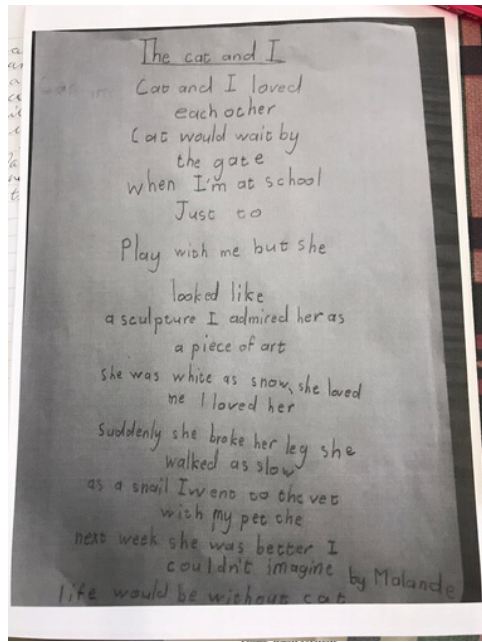 The cat and I
Cat and I loved
each other
Cat would wait by
the gate
when I'm at school
Just to
Play with me but she
looked like
a sculpture I admired her as
a piece of art
she was white as snow, she loved
me I loved her
suddenly she broke her leg she
walked as slow
as a snail I went to the vet
with my pet the
next week she was better I
couldn't imagine by Malande
life would be without cat